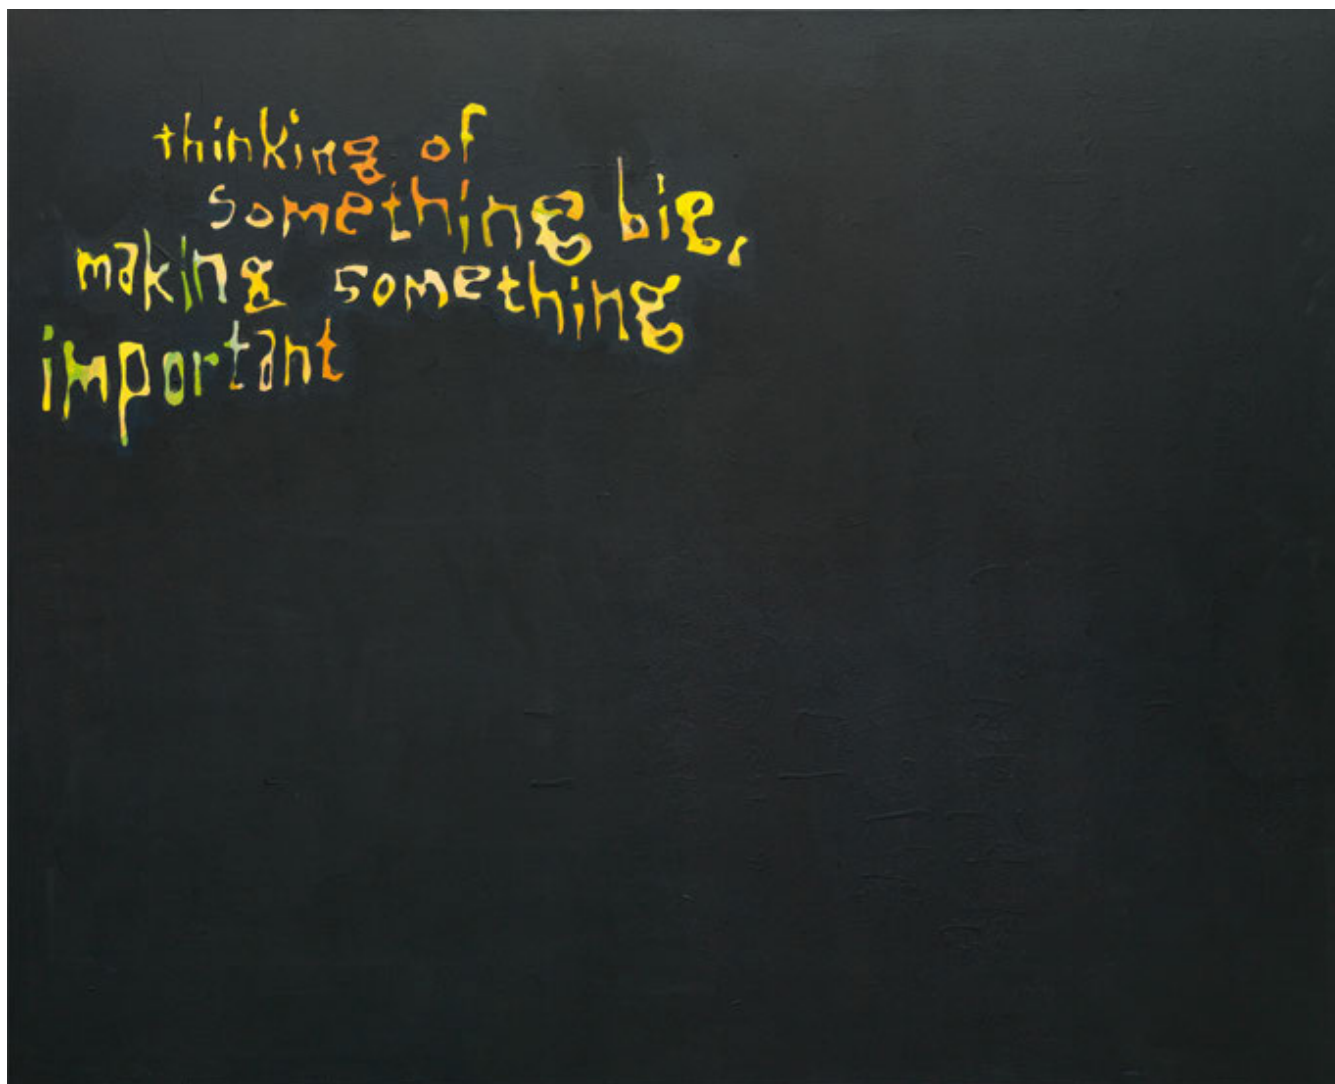 thinking of
something big,
making something
important